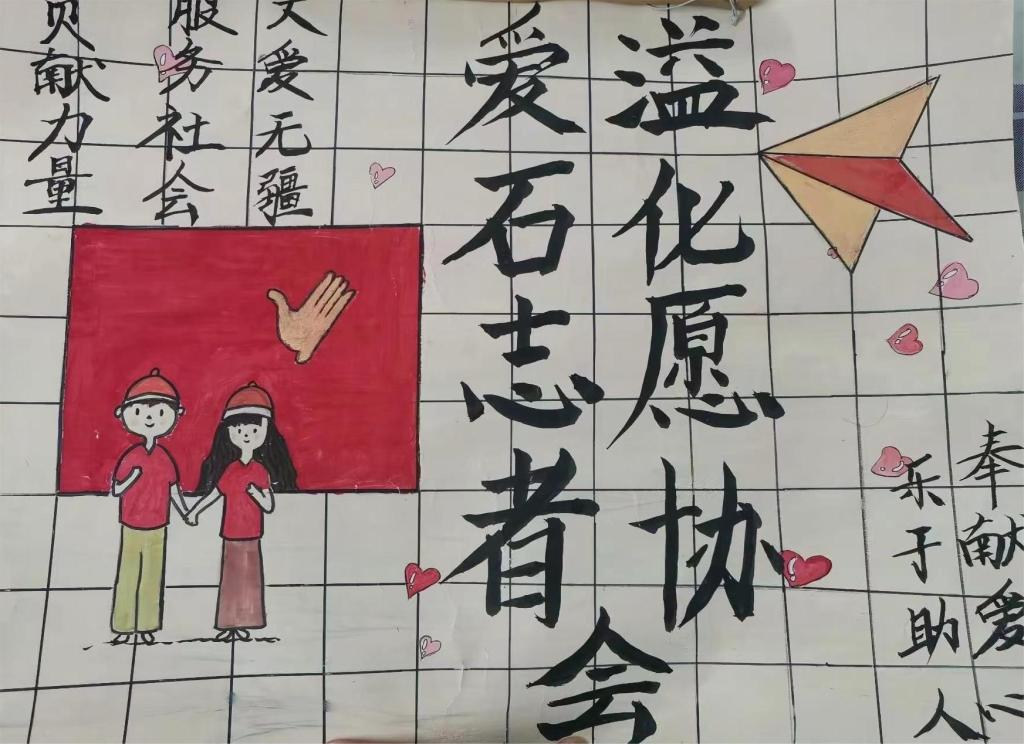 爱溢
石化
志愿
者协
会
大爱无疆
服务社会
贡献力量
奉献爱心
乐于助人